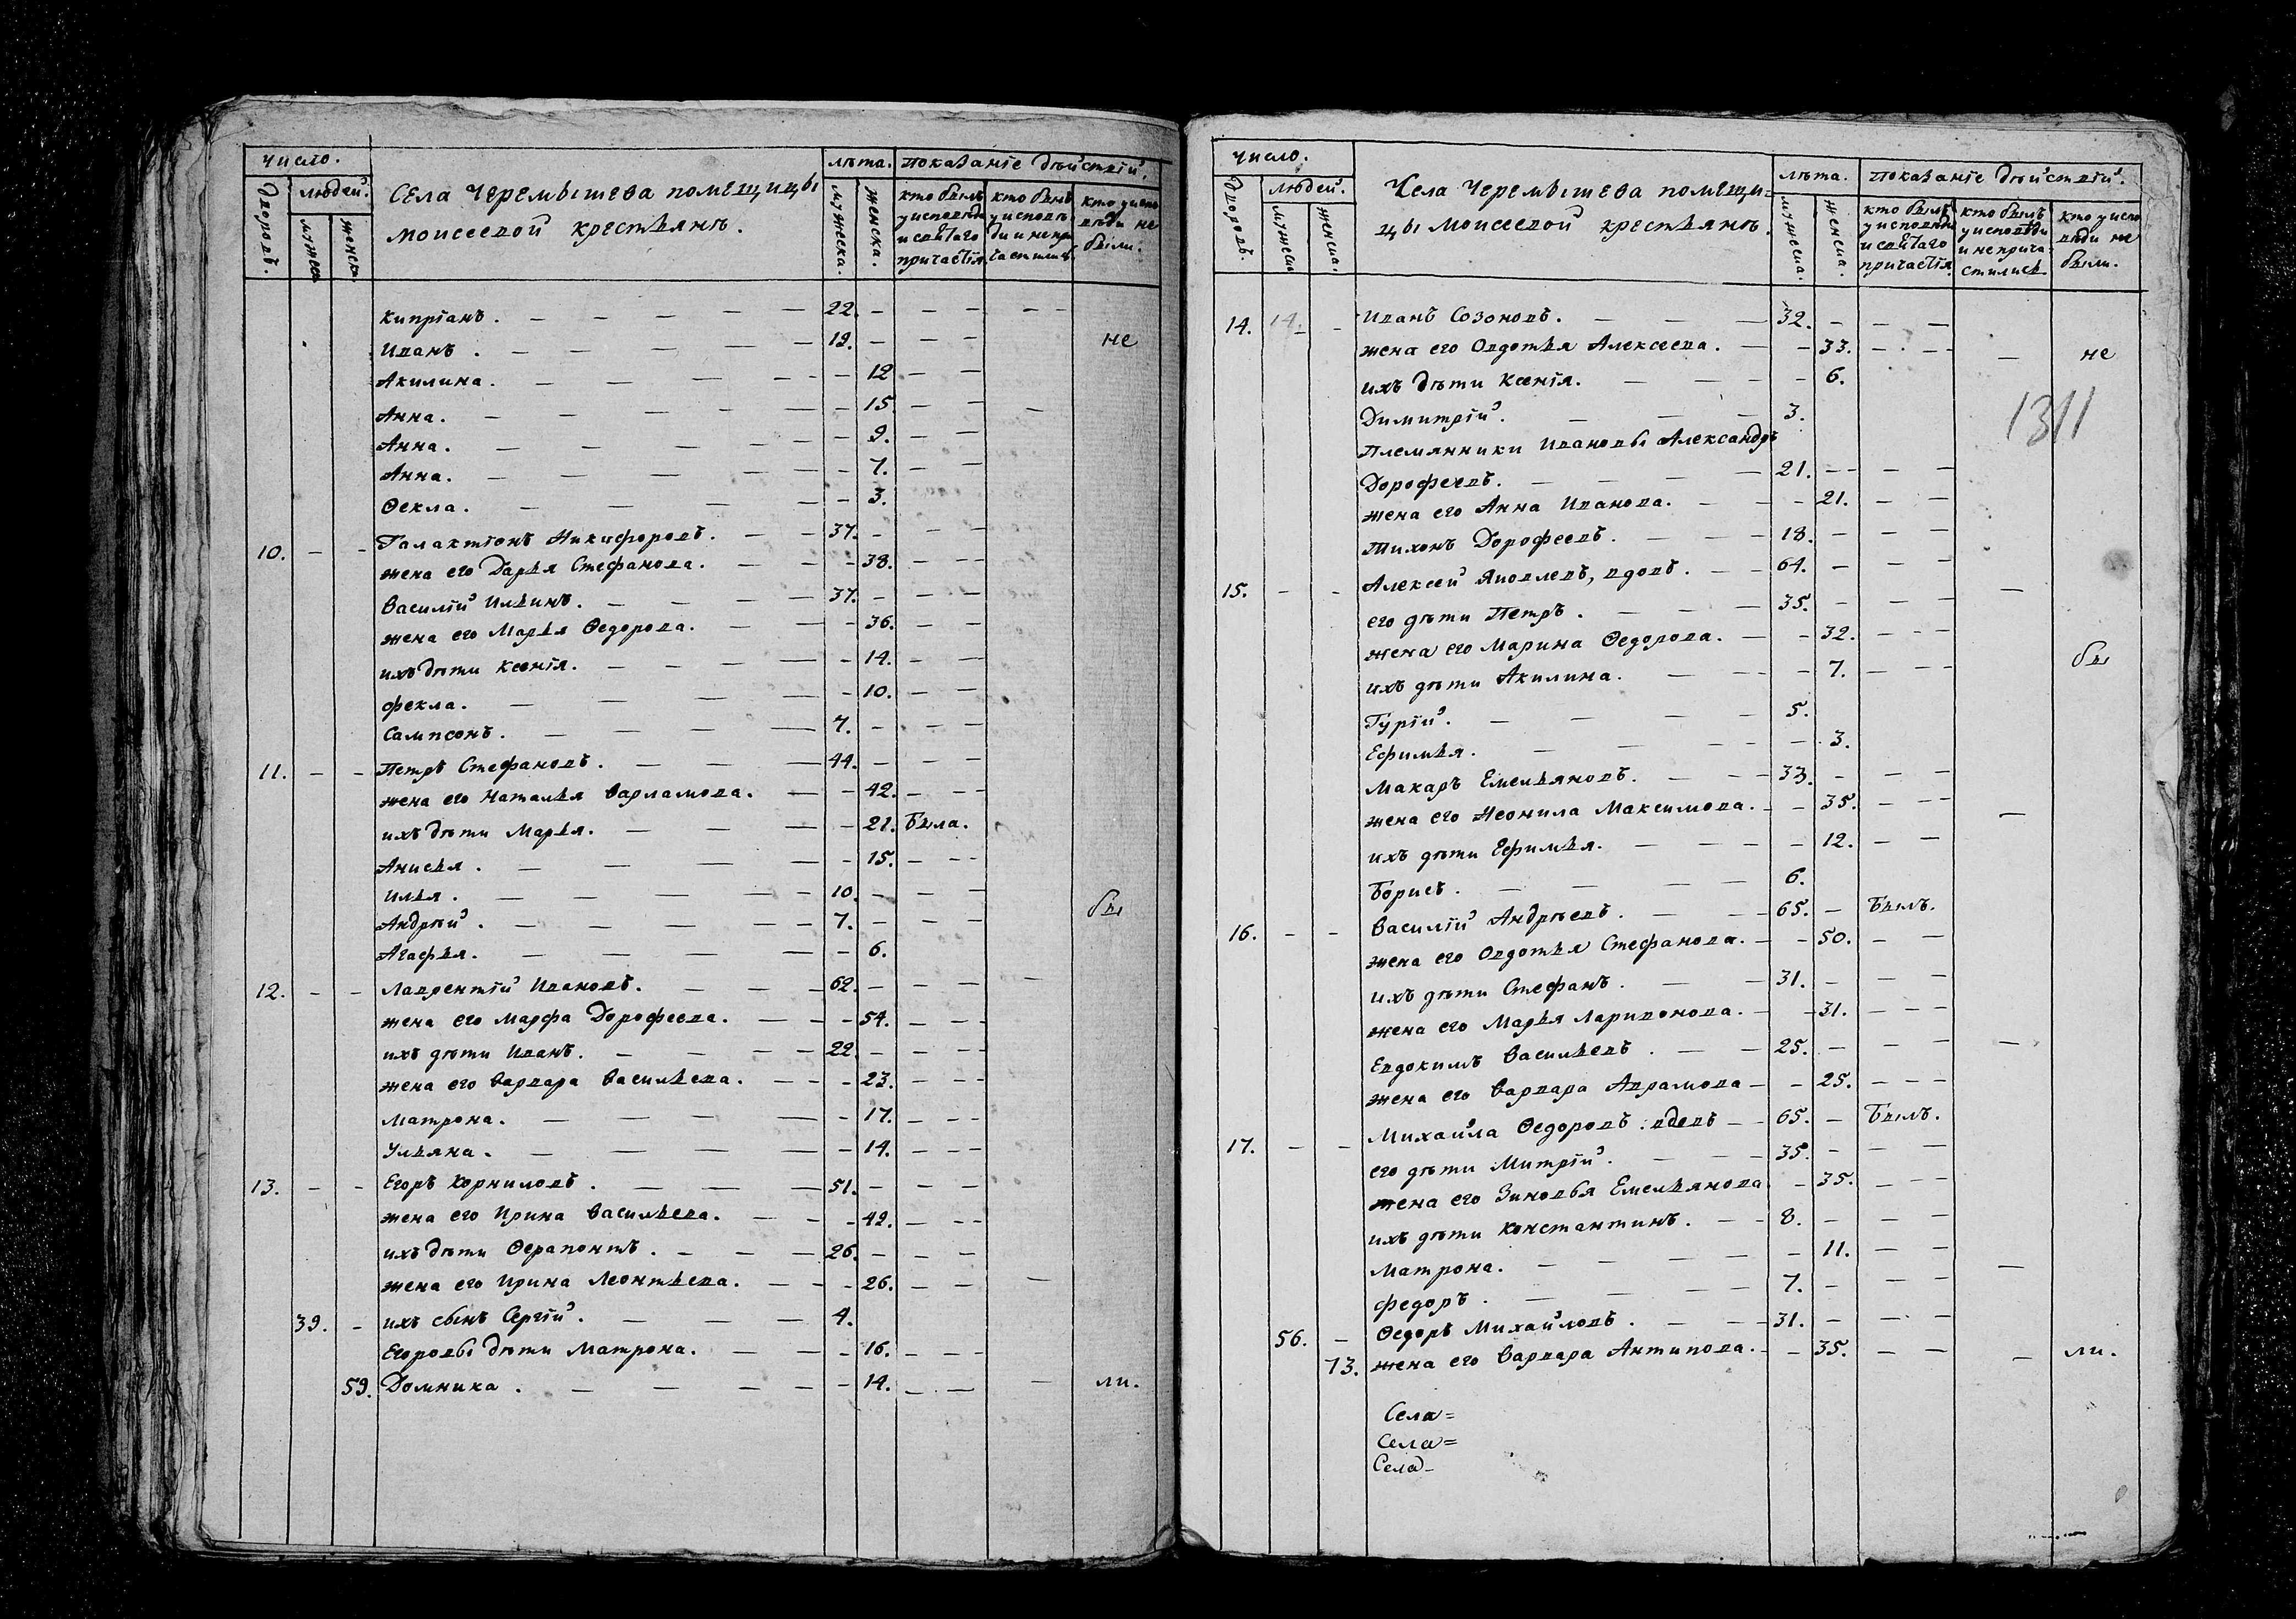 число.
людей.
дворовъ.
мужеск
женск
Села Черемышева помещицы
Моисеевой крестьянъ.
лѣта.
мужеска.
женска.
показаніе дѣйствій.
кто былъ у исповѣди и святаго причастія
кто былъ у исповѣди и не причастились
кто у исповѣди не были.
Кипріанъ. 22.
Иванъ. 19. не
Акилина. 12
Анна. 15.
Анна. 9.
Анна. 7.
Ѳекла. 3.
10. Галактіонъ Никифоровъ. 37.
жена его Дарья Стефанова. 38.
Василій Ильинъ. 37.
жена его Марья Ѳедорова. 36.
ихъ дѣти Ксенія. 14.
Фекла. 10.
Сампсонъ. 7.
11. Петръ Стефановъ. 44.
жена его Наталья Варламова. 42.
ихъ дѣти Марья. 21. Была.
Анисья. 15.
Илья. 10.
Андрѣй. 7. бы
Агафья. 6.
12. Лаврентій Ивановъ. 62.
жена его Марфа Дорофеева. 54.
ихъ дѣти Иванъ. 22.
жена его Варвара Васильева. 23.
Матрона. 17.
Ульяна. 14.
13. Егоръ Корниловъ. 51.
жена его Ирина Васильева. 42.
ихъ дѣти Ѳерапонтъ. 26.
жена его Ирина Леонтьева. 26.
39. ихъ сынъ Сергій. 4.
Егоровы дѣти Матрона. 16.
59. Домника. 14. ли.
число.
людей.
дворовъ.
мужеска
женска.
Села Черемышева помещи=
цы Моисеевой крестьянъ.
лѣта.
мужеска.
женска.
показаніе дѣйствій.
кто былъ у исповѣди и святаго причастія
кто былъ у исповѣди и не причастились
кто у исповѣди не были.
14. 14. Иванъ Созоновъ. 32.
жена его Овдотья Алексеева. 33. не
ихъ дѣти Ксенія. 6.
Димитрій. 3.
1311
Племянники Ивановы Александръ
Дорофеевъ. 21.
жена его Анна Иванова. 21.
Тихонъ Дорофеевъ. 18.
15. Алексей Яковлевъ, вдовъ. 64.
его дѣти Петръ. 35.
жена его Марина Ѳедорова. 32.
ихъ дѣти Акилина. 7. бы
Гурій. 5.
Ефимья. 3.
Макаръ Емельяновъ. 33.
жена его Неонила Максимова. 35.
ихъ дѣти Ефимья. 12.
Борисъ. 6.
16. Василій Андрѣевъ. 65. Былъ.
жена его Овдотья Стефанова. 50.
ихъ дѣти Стефанъ. 31.
жена его Марья Ларивонова. 31.
Евдокимъ Васильевъ. 25.
жена его Варвара Аврамова 25.
17. Михайла Ѳедоровъ: вдовъ 65. Былъ.
его дѣти Митрій. 35.
жена его Зиновья Емельянова 35.
ихъ дѣти Константинъ. 8.
Матрона. 11.
Федоръ. 7.
56. Ѳедоръ Михайловъ. 31.
73. жена его Варвара Антипова. 35. ли.
Села=
Села=
Села-